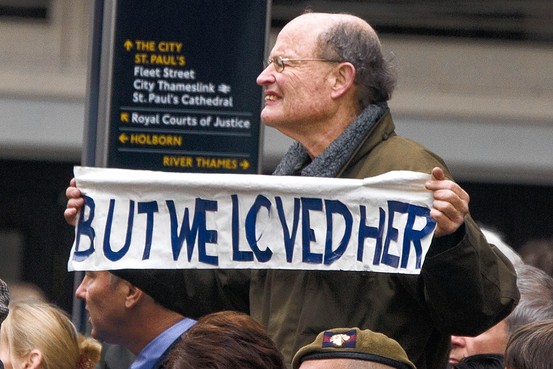 THE CITY
ST. PAUL'S
Fleet Street
City Thameslink
St. Paul's Cathedral
Royal Courts of Justice
HOLBORN
RIVER THAMES
BUT WE LOVED HER